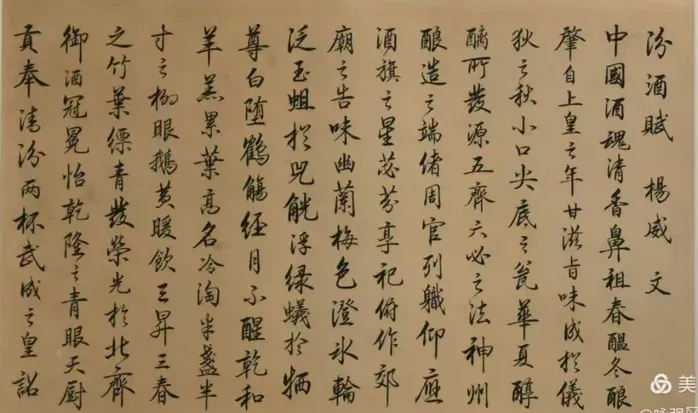 汾酒赋 楊威 文
中國酒魂清香鼻祖春醖冬酿
肇自上皇之年甘滋旨味成於儀
狄之秋小口尖底之瓮華夏醇
醨所發源五齊六必之法神州
酿造之端绪周官列職仰應
酒旗之星苾芬享祀俯作郊
廟之告味幽蘭梅色澄冰輪
泛玉蛆於兕觥浮绿蟻於犧
尊白堕鶴觴经月不醒乾和
羊羔累葉高名冷淘半盞半
寸之柳眼鵝黄暖飲三昇三春
之竹葉缥青發榮光於北齊
御酒冠冕怡乾隆之青眼天厨
貢奉清汾两杯武成之皇詔
美